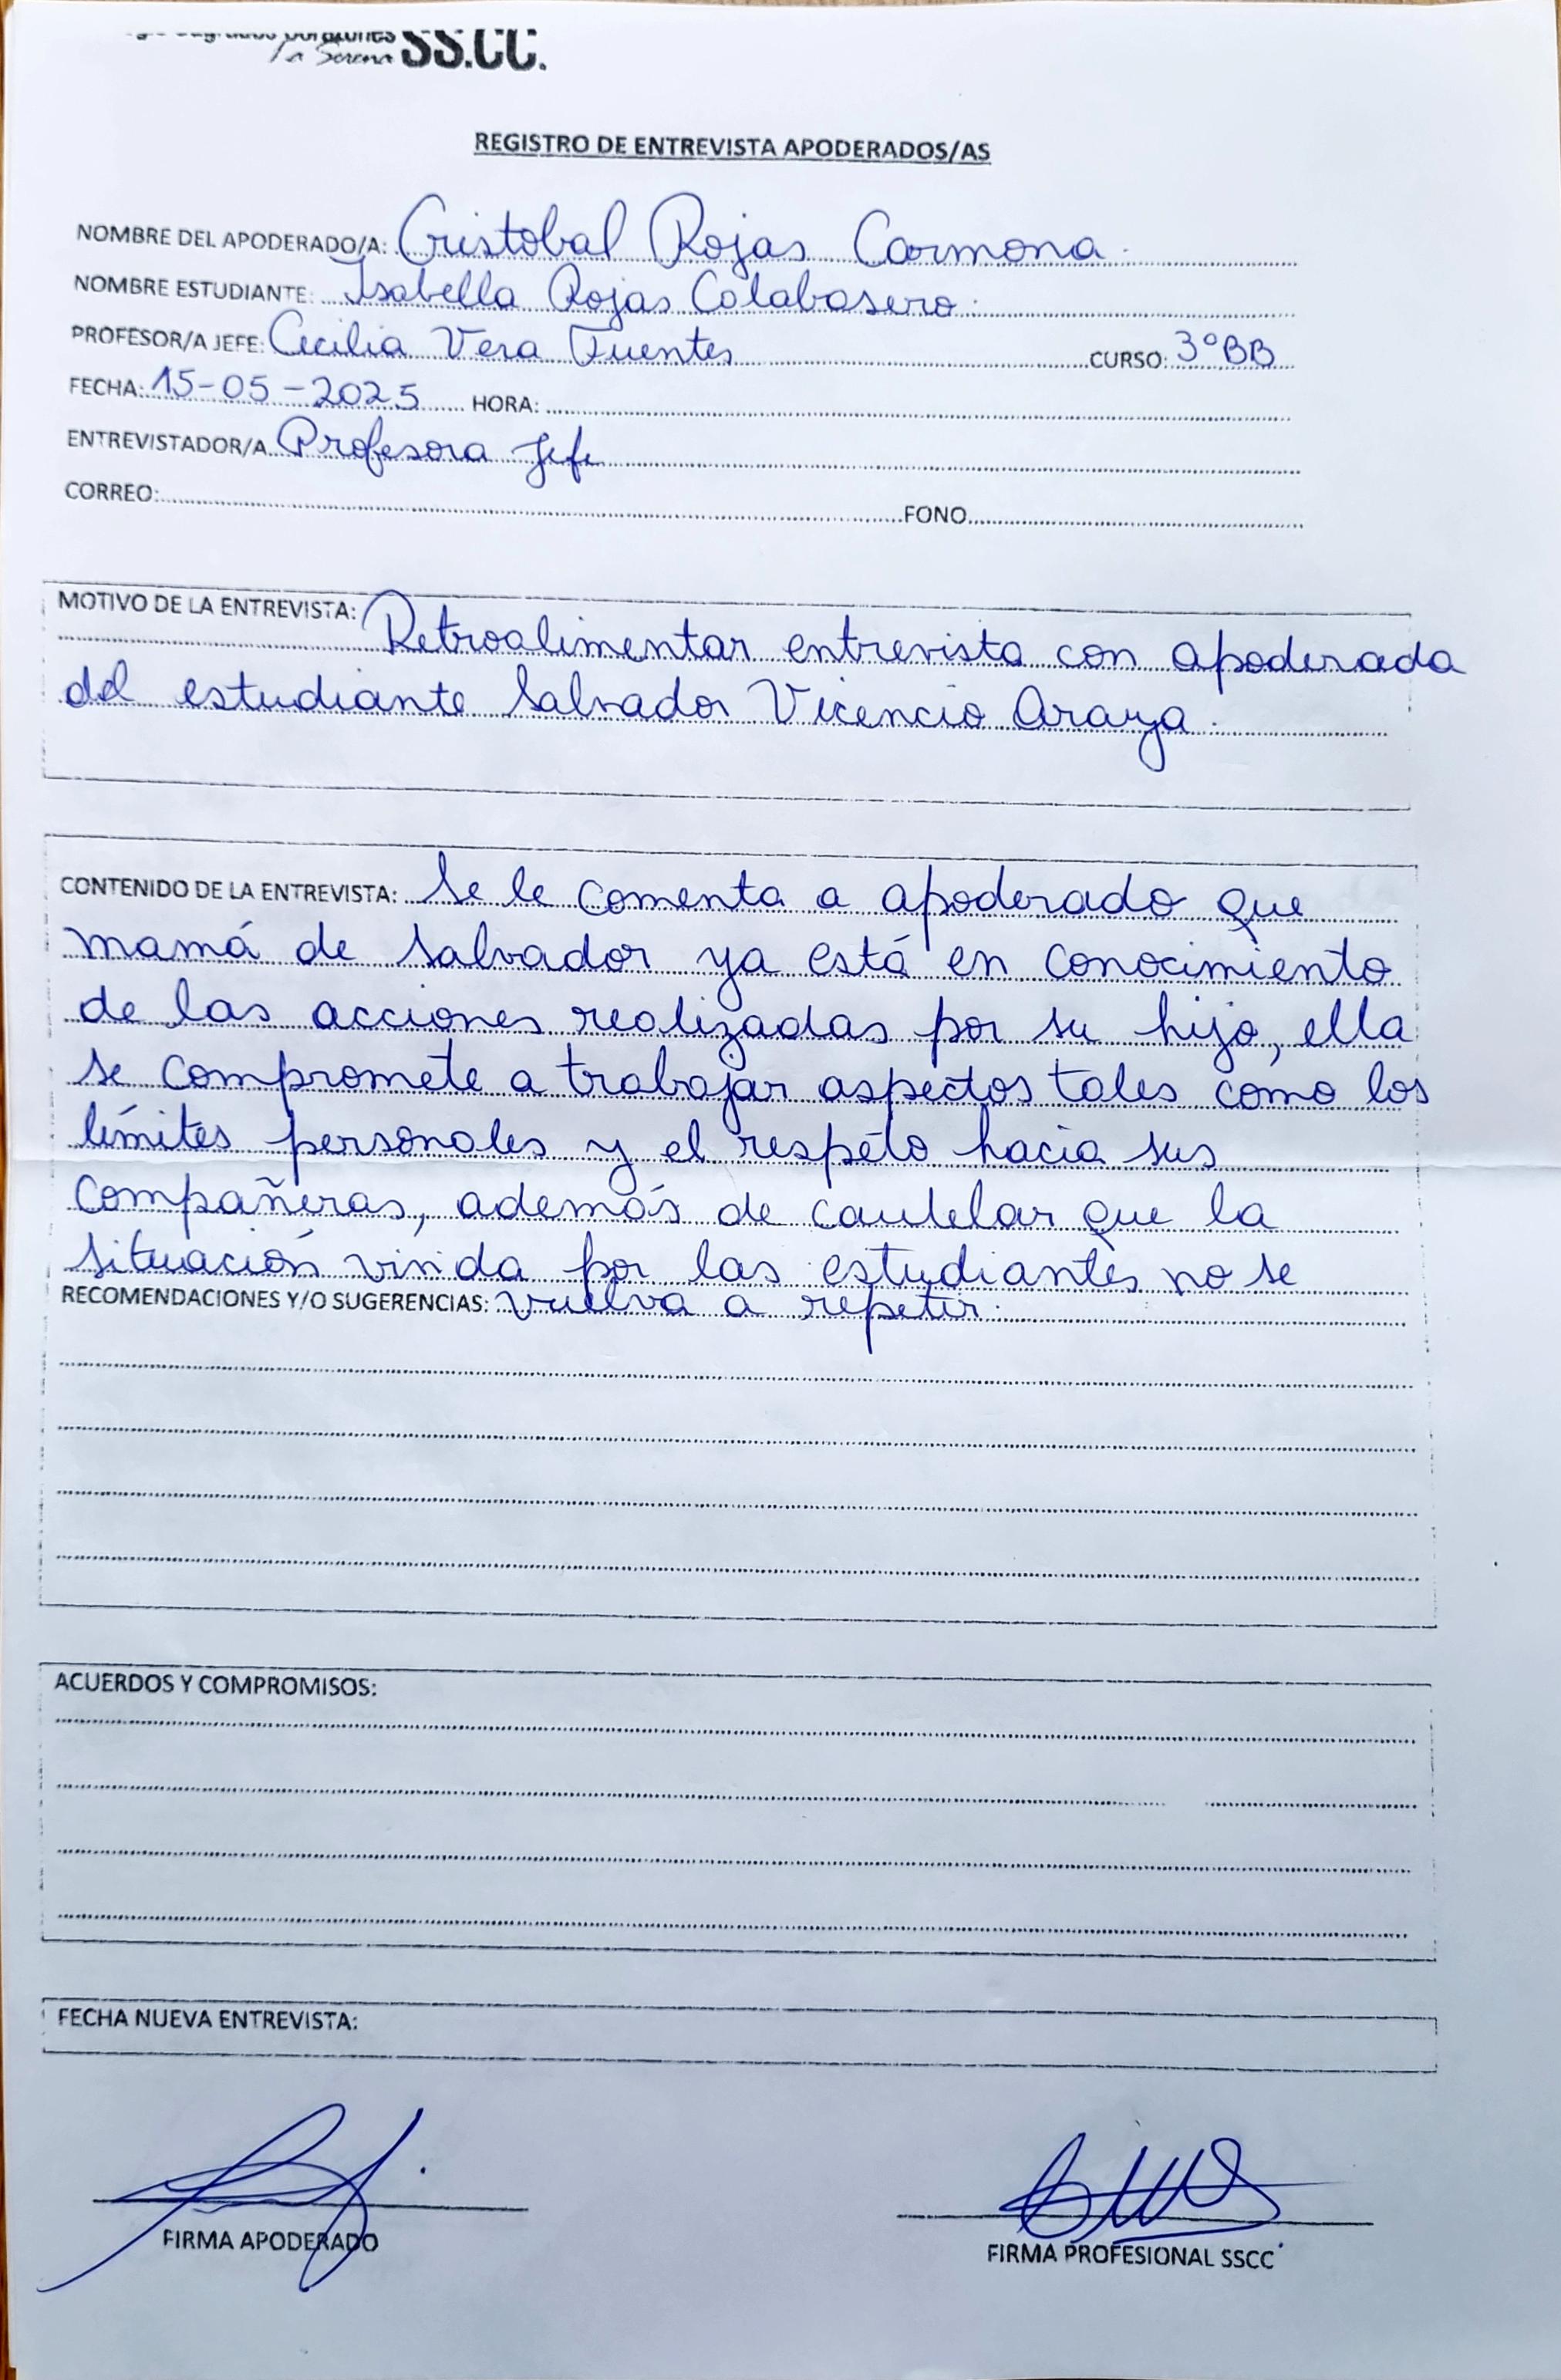 Corazones
La Serena SS.CC.
REGISTRO DE ENTREVISTA APODERADOS/AS
NOMBRE DEL APODERADO/A: Cristobal Rojas Carmona.
NOMBRE ESTUDIANTE: Isabella Rojas Colabasero.
PROFESOR/A JEFE: Cecilia Vera Fuentes CURSO: 3°BB
FECHA: 15-05-2025 HORA:
ENTREVISTADOR/A Profesora Jefe
CORREO: FONO
MOTIVO DE LA ENTREVISTA: Retroalimentar entrevista con apoderada
del estudiante Salvador Vicencio Araya.
CONTENIDO DE LA ENTREVISTA: Se le comenta a apoderado que
mamá de Salvador ya está en conocimiento
de las acciones realizadas por su hijo, ella
se compromete a trabajar aspectos tales como los
límites personales y el respeto hacia sus
compañeras, además de cautelar que la
situación vivida por las estudiantes no se
RECOMENDACIONES Y/O SUGERENCIAS: vuelva a repetir.
ACUERDOS Y COMPROMISOS:
FECHA NUEVA ENTREVISTA:
FIRMA APODERADO
FIRMA PROFESIONAL SSCC